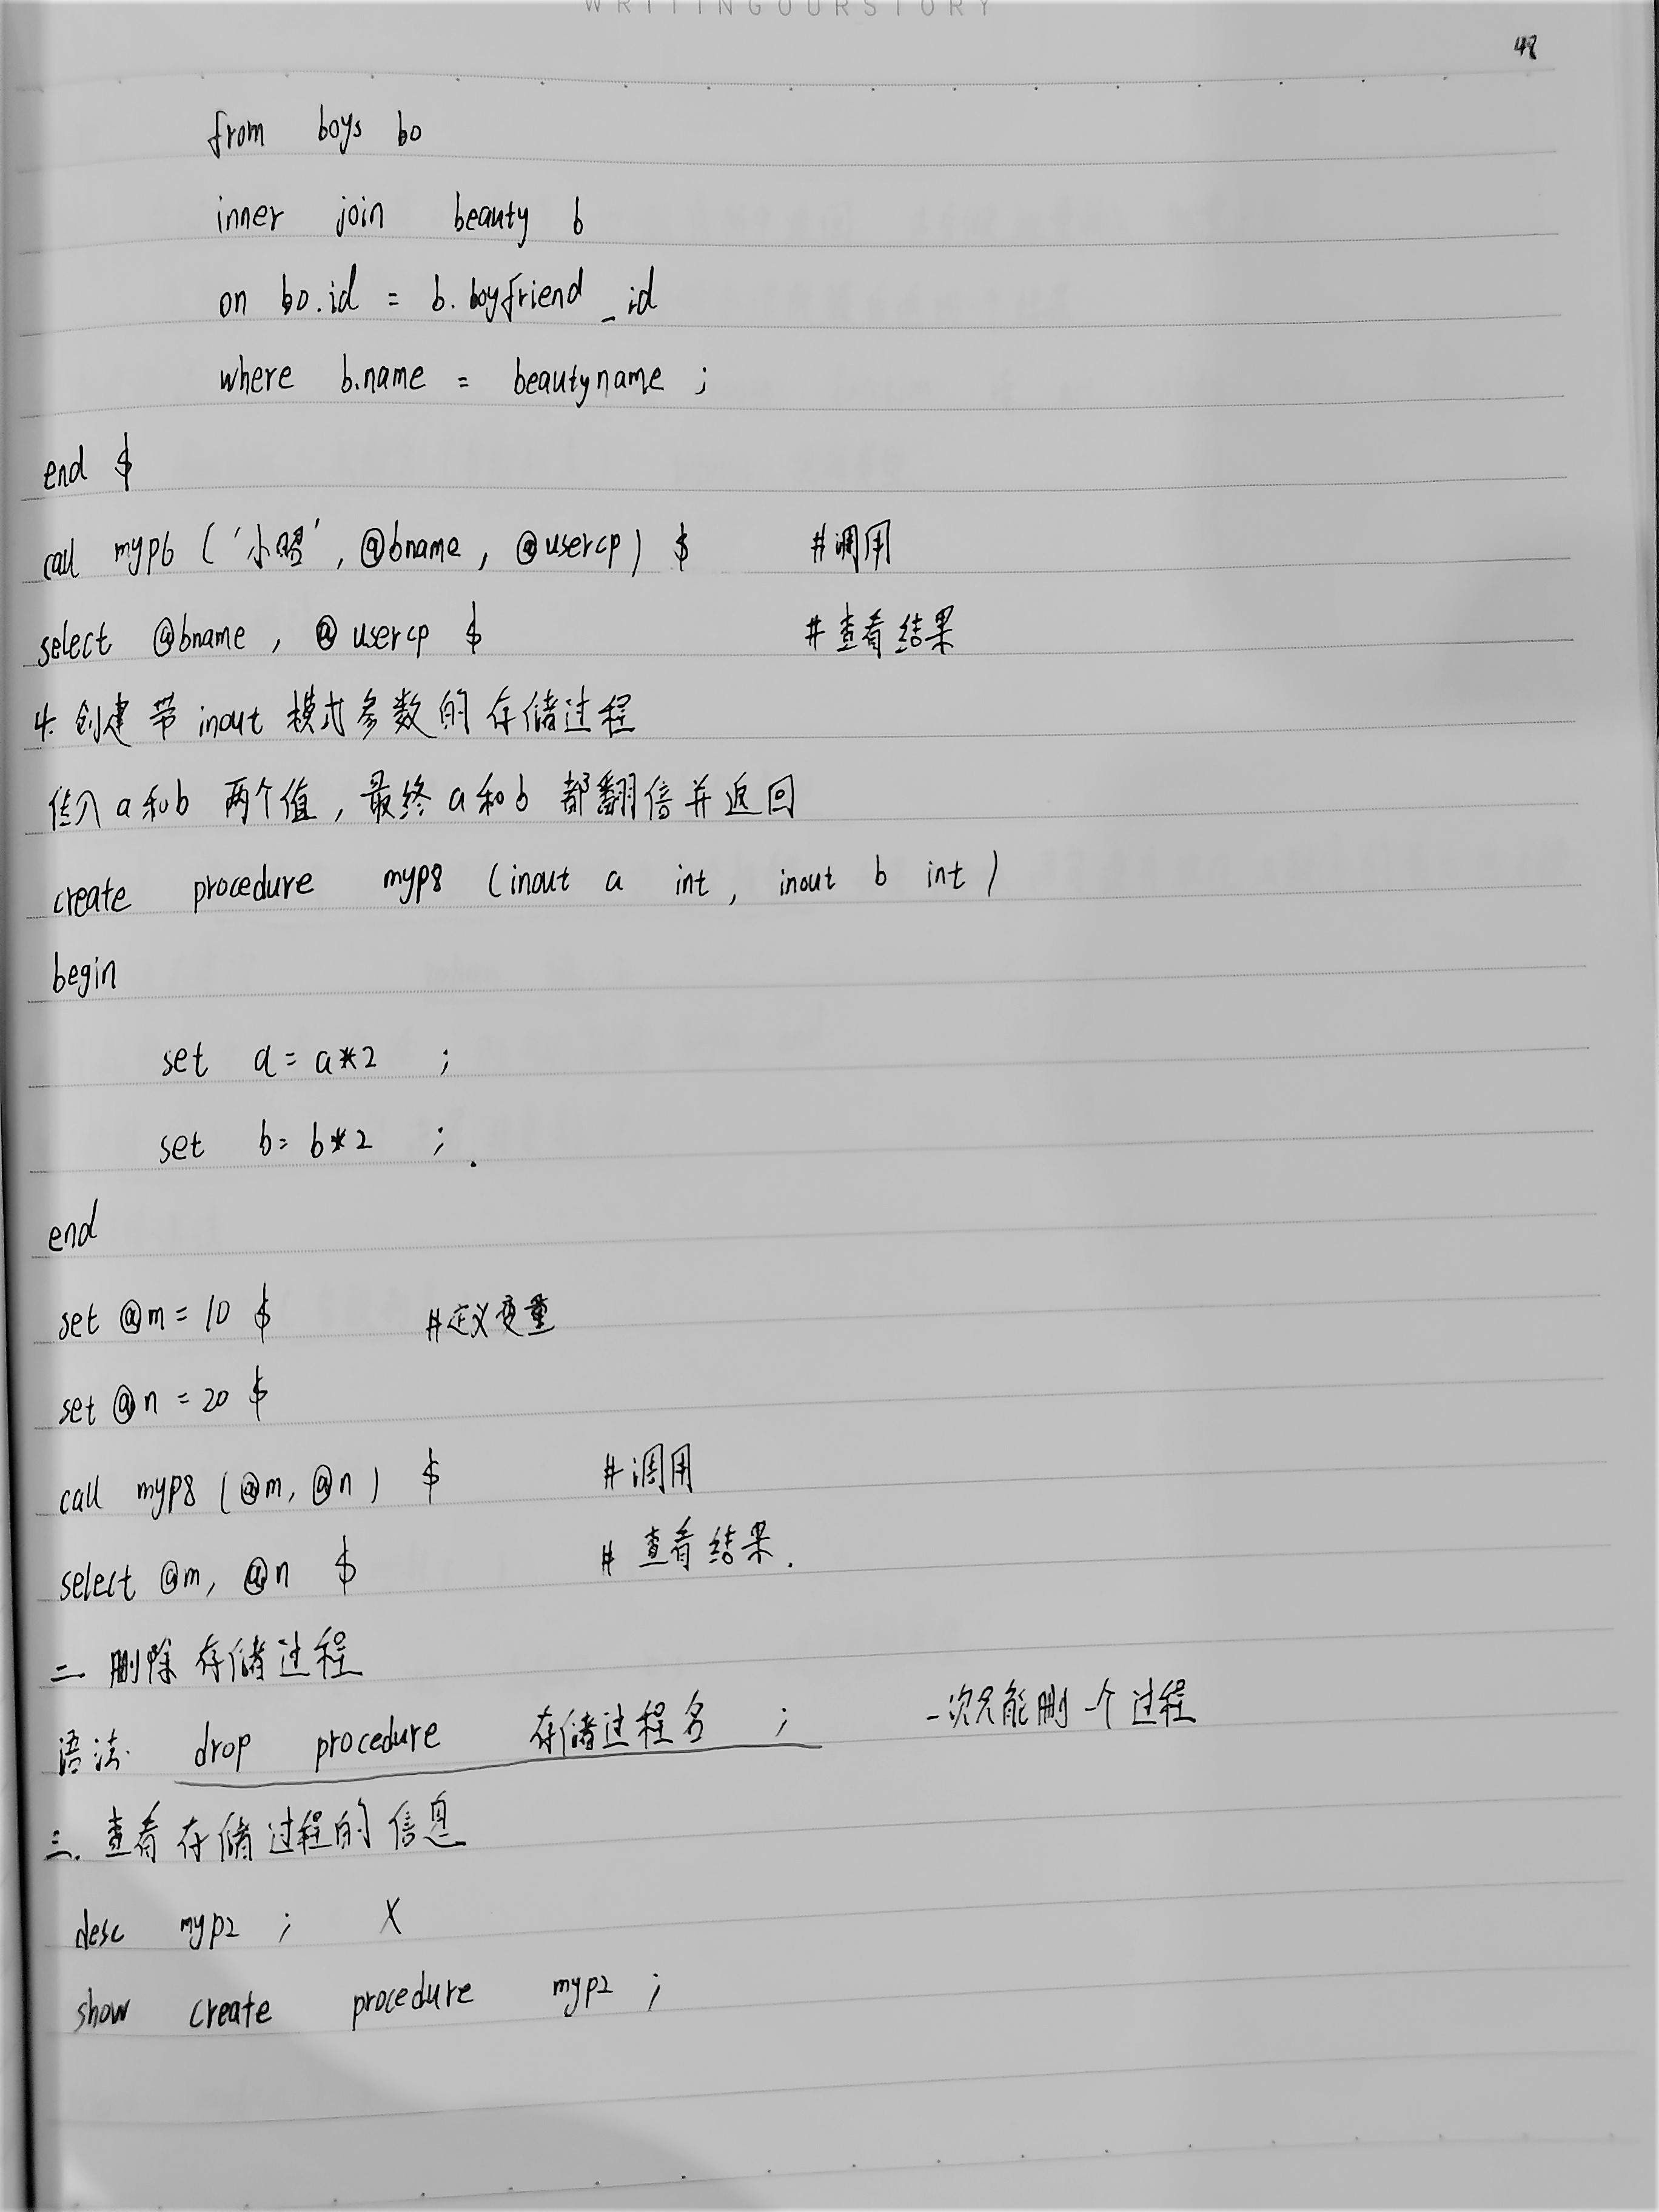 WRITINGOURSTORY
48
from boys bo
inner join beauty b
on bo.id = b.boyfriend_id
where b.name = beautyname ;
end $
call myp6 ('小昭', @bname , @usercp) $ #调用
select @bname , @usercp $ #查看结果
4. 创建带inout模式参数的存储过程
传入a和b两个值,最终a和b都翻倍并返回
create procedure myp8 (inout a int, inout b int)
begin
set a=a*2 ;
set b=b*2 ;
end
set @m=10 $ #定义变量
set @n=20 $
call myp8 (@m, @n) $ #调用
select @m, @n $ # 查看结果.
二 删除存储过程
语法. drop procedure 存储过程名 ; 一次只能删一个过程
三. 查看存储过程的信息
desc myp2 ; X
show create procedure myp2 ;